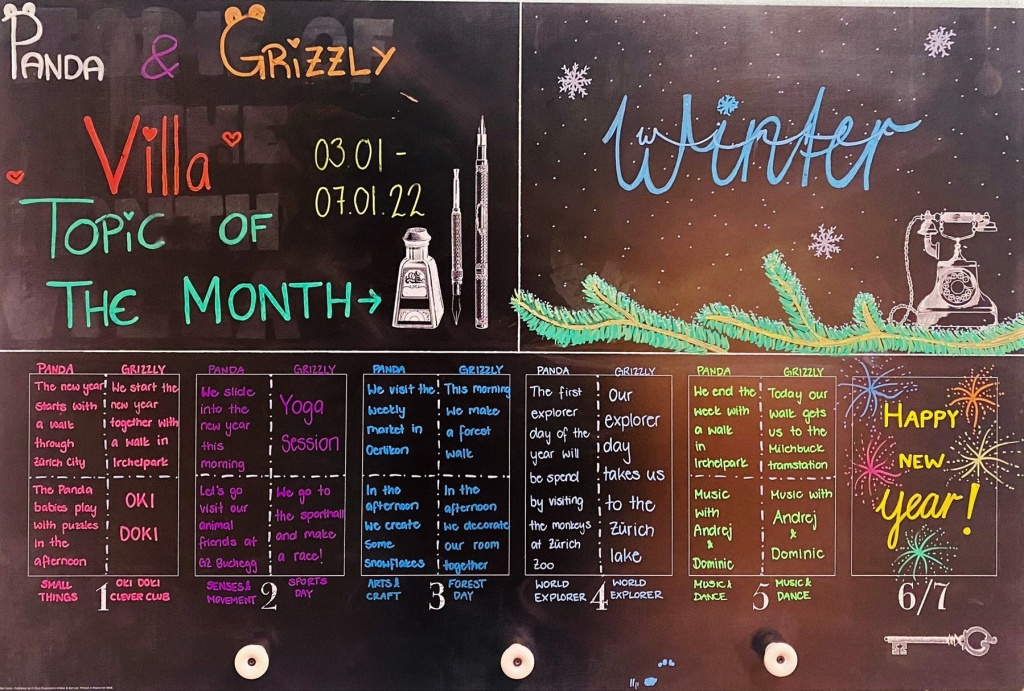 PANDA & GRIZZLY
Villa
03.01 -
07.01.22
TOPIC OF
THE MONTH→
Winter
PANDA
The new year
starts with
a walk
through
Zürich City
The Panda
babies play
with puzzles
in the
afternoon
SMALL
THINGS
GRIZZLY
We start the
new year
together with
a walk in
Irchelpark
OKI
DOKI
OKI DOKI
CLEVER CLUB
1
PANDA
We slide
into the
new year
this
morning
Let's go
visit our
animal
friends at
GZ Buchegg
SENSES &
MOVEMENT
GRIZZLY
Yoga
Session
We go to
the sporthall
and make
a race!
SPORTS
DAY
2
PANDA
We visit the
weekly
market in
Oerlikon
In the
afternoon
we create
some
snowflakes
ARTS &
CRAFT
GRIZZLY
This morning
we make
a forest
walk
In the
afternoon
we decorate
our room
together
FOREST
DAY
3
PANDA
The first
explorer
day of the
year will
be spend
by visiting
the monkeys
at Zürich
Zoo
WORLD
EXPLORER
GRIZZLY
Our
explorer
day
takes us
to the
Zürich
lake
WORLD
EXPLORER
4
PANDA
We end the
week with
a walk
in
Irchelpark
Music
with
Andrej
&
Dominic
MUSIC &
DANCE
GRIZZLY
Today our
walk gets
us to the
Milchbuck
tramstation
Music with
Andrej
&
Dominic
MUSIC &
DANCE
5
HAPPY
NEW
year!
6/7